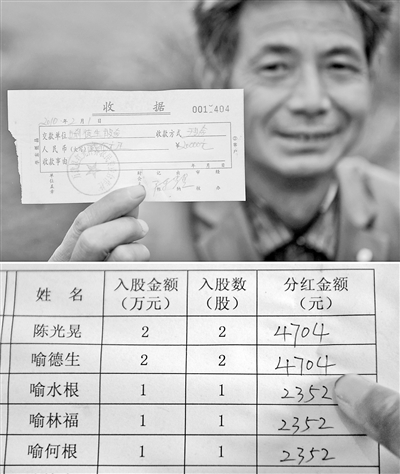 收 据 0011404
交款单位 收款方式
人民币(大写) ¥
收款事由
姓 名 入股金额(万元) 入股数(股) 分红金额(元)
陈光晃 2 2 4704
喻德生 2 2 4704
喻水根 1 1 2352
喻林福 1 1 2352
喻何根 1 1 2352